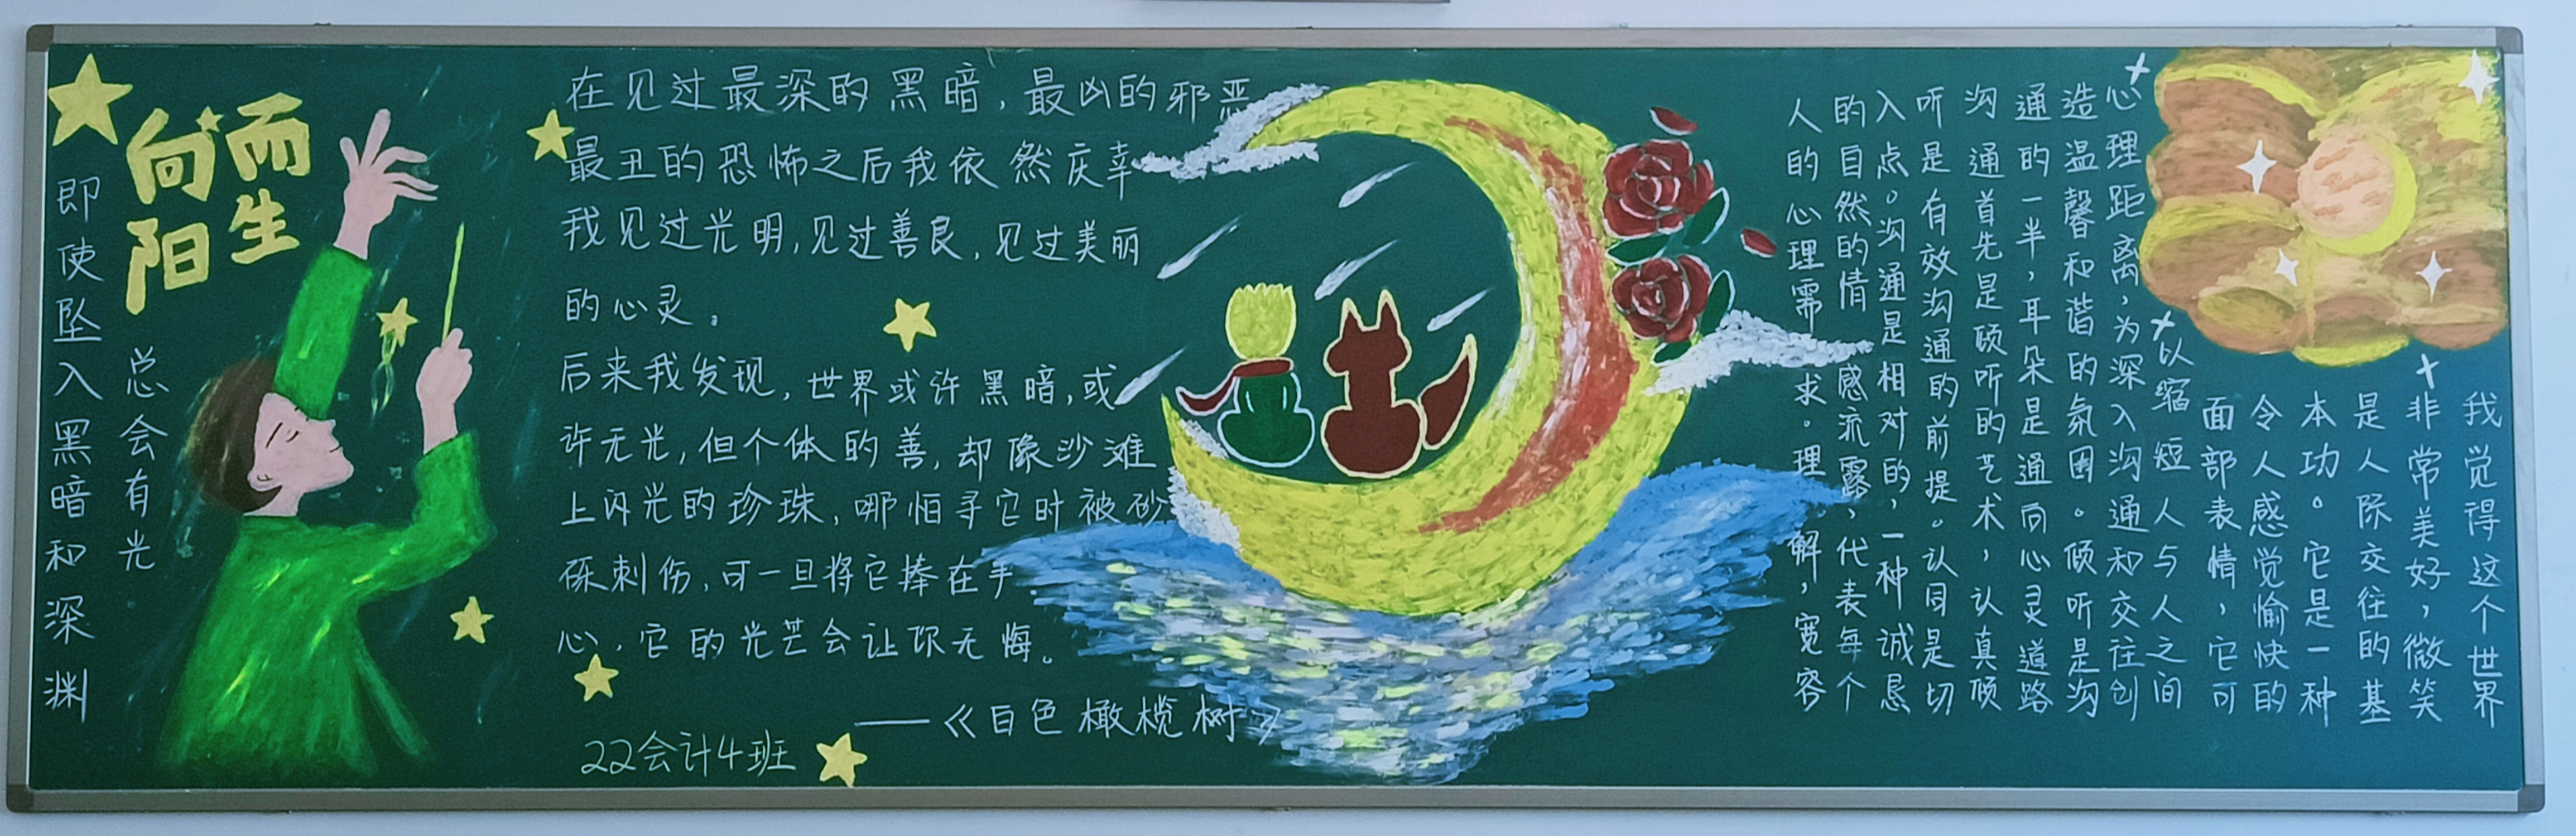 向阳
而生
即使坠入黑暗和深渊
总会有光
在见过最深的黑暗，最凶的邪恶
最丑的恐怖之后我依然庆幸
我见过光明，见过善良，见过美丽
的心灵。
后来我发现，世界或许黑暗，或
许无光，但个体的善，却像沙滩
上闪光的珍珠，哪怕寻它时被砂
砾刺伤，可一旦将它捧在手
心，它的光芒会让你无悔。
——《白色橄榄树》
22会计4班
我觉得这个世界
非常美好，微笑
是人际交往的基
本功。它是一种
令人感觉愉快的
面部表情，它可
以缩短人与人之间
心理距离，为深入沟通和交往创
造温馨和谐的氛围。倾听是沟
通的一半，耳朵是通向心灵道路
沟通首先是倾听的艺术，认真倾
听是有效沟通的前提。认同是切
入点。沟通是相对的，一种诚恳
的自然的情感流露，代表每个
人的心理需求。理解，宽容